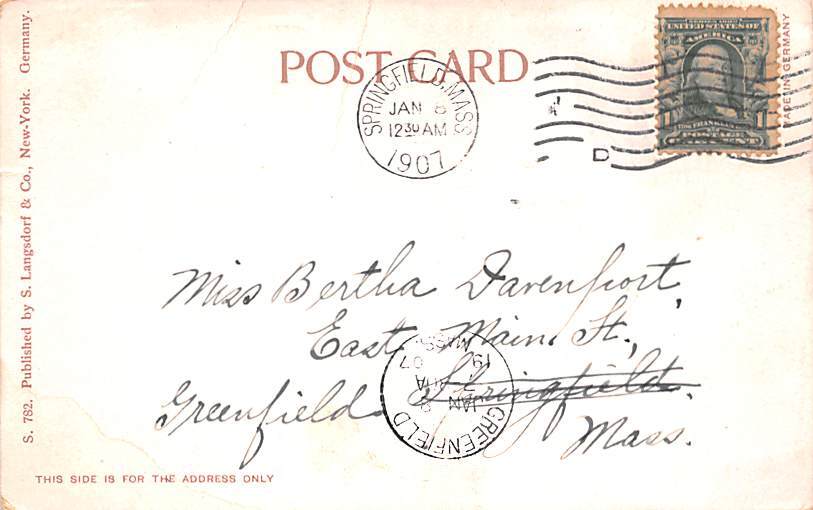 POST CARD
SPRINGFIELD, MASS.
JAN 8
12 30 AM
1907
D
SERIES 1902
UNITED STATES OF
AMERICA
1 FRANKLIN 1
POSTAGE
ONE CENT
MADE IN GERMANY
S. 782. Published by S. Langsdorf & Co., New-York. Germany.
Miss Bertha Davenport
East Main St.,
Greenfield Springfield.
Mass.
GREENFIELD
JAN 8
7
19 07
MASS.
THIS SIDE IS FOR THE ADDRESS ONLY